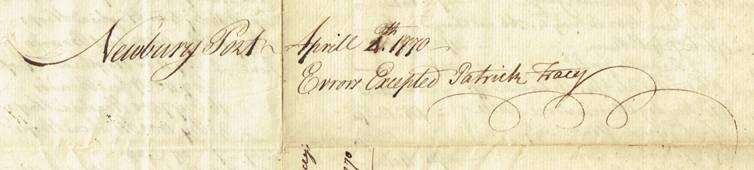 Newbury Port Aprill 4th. 1770
Errors Excepted Patrick Tracy
cey.
1770